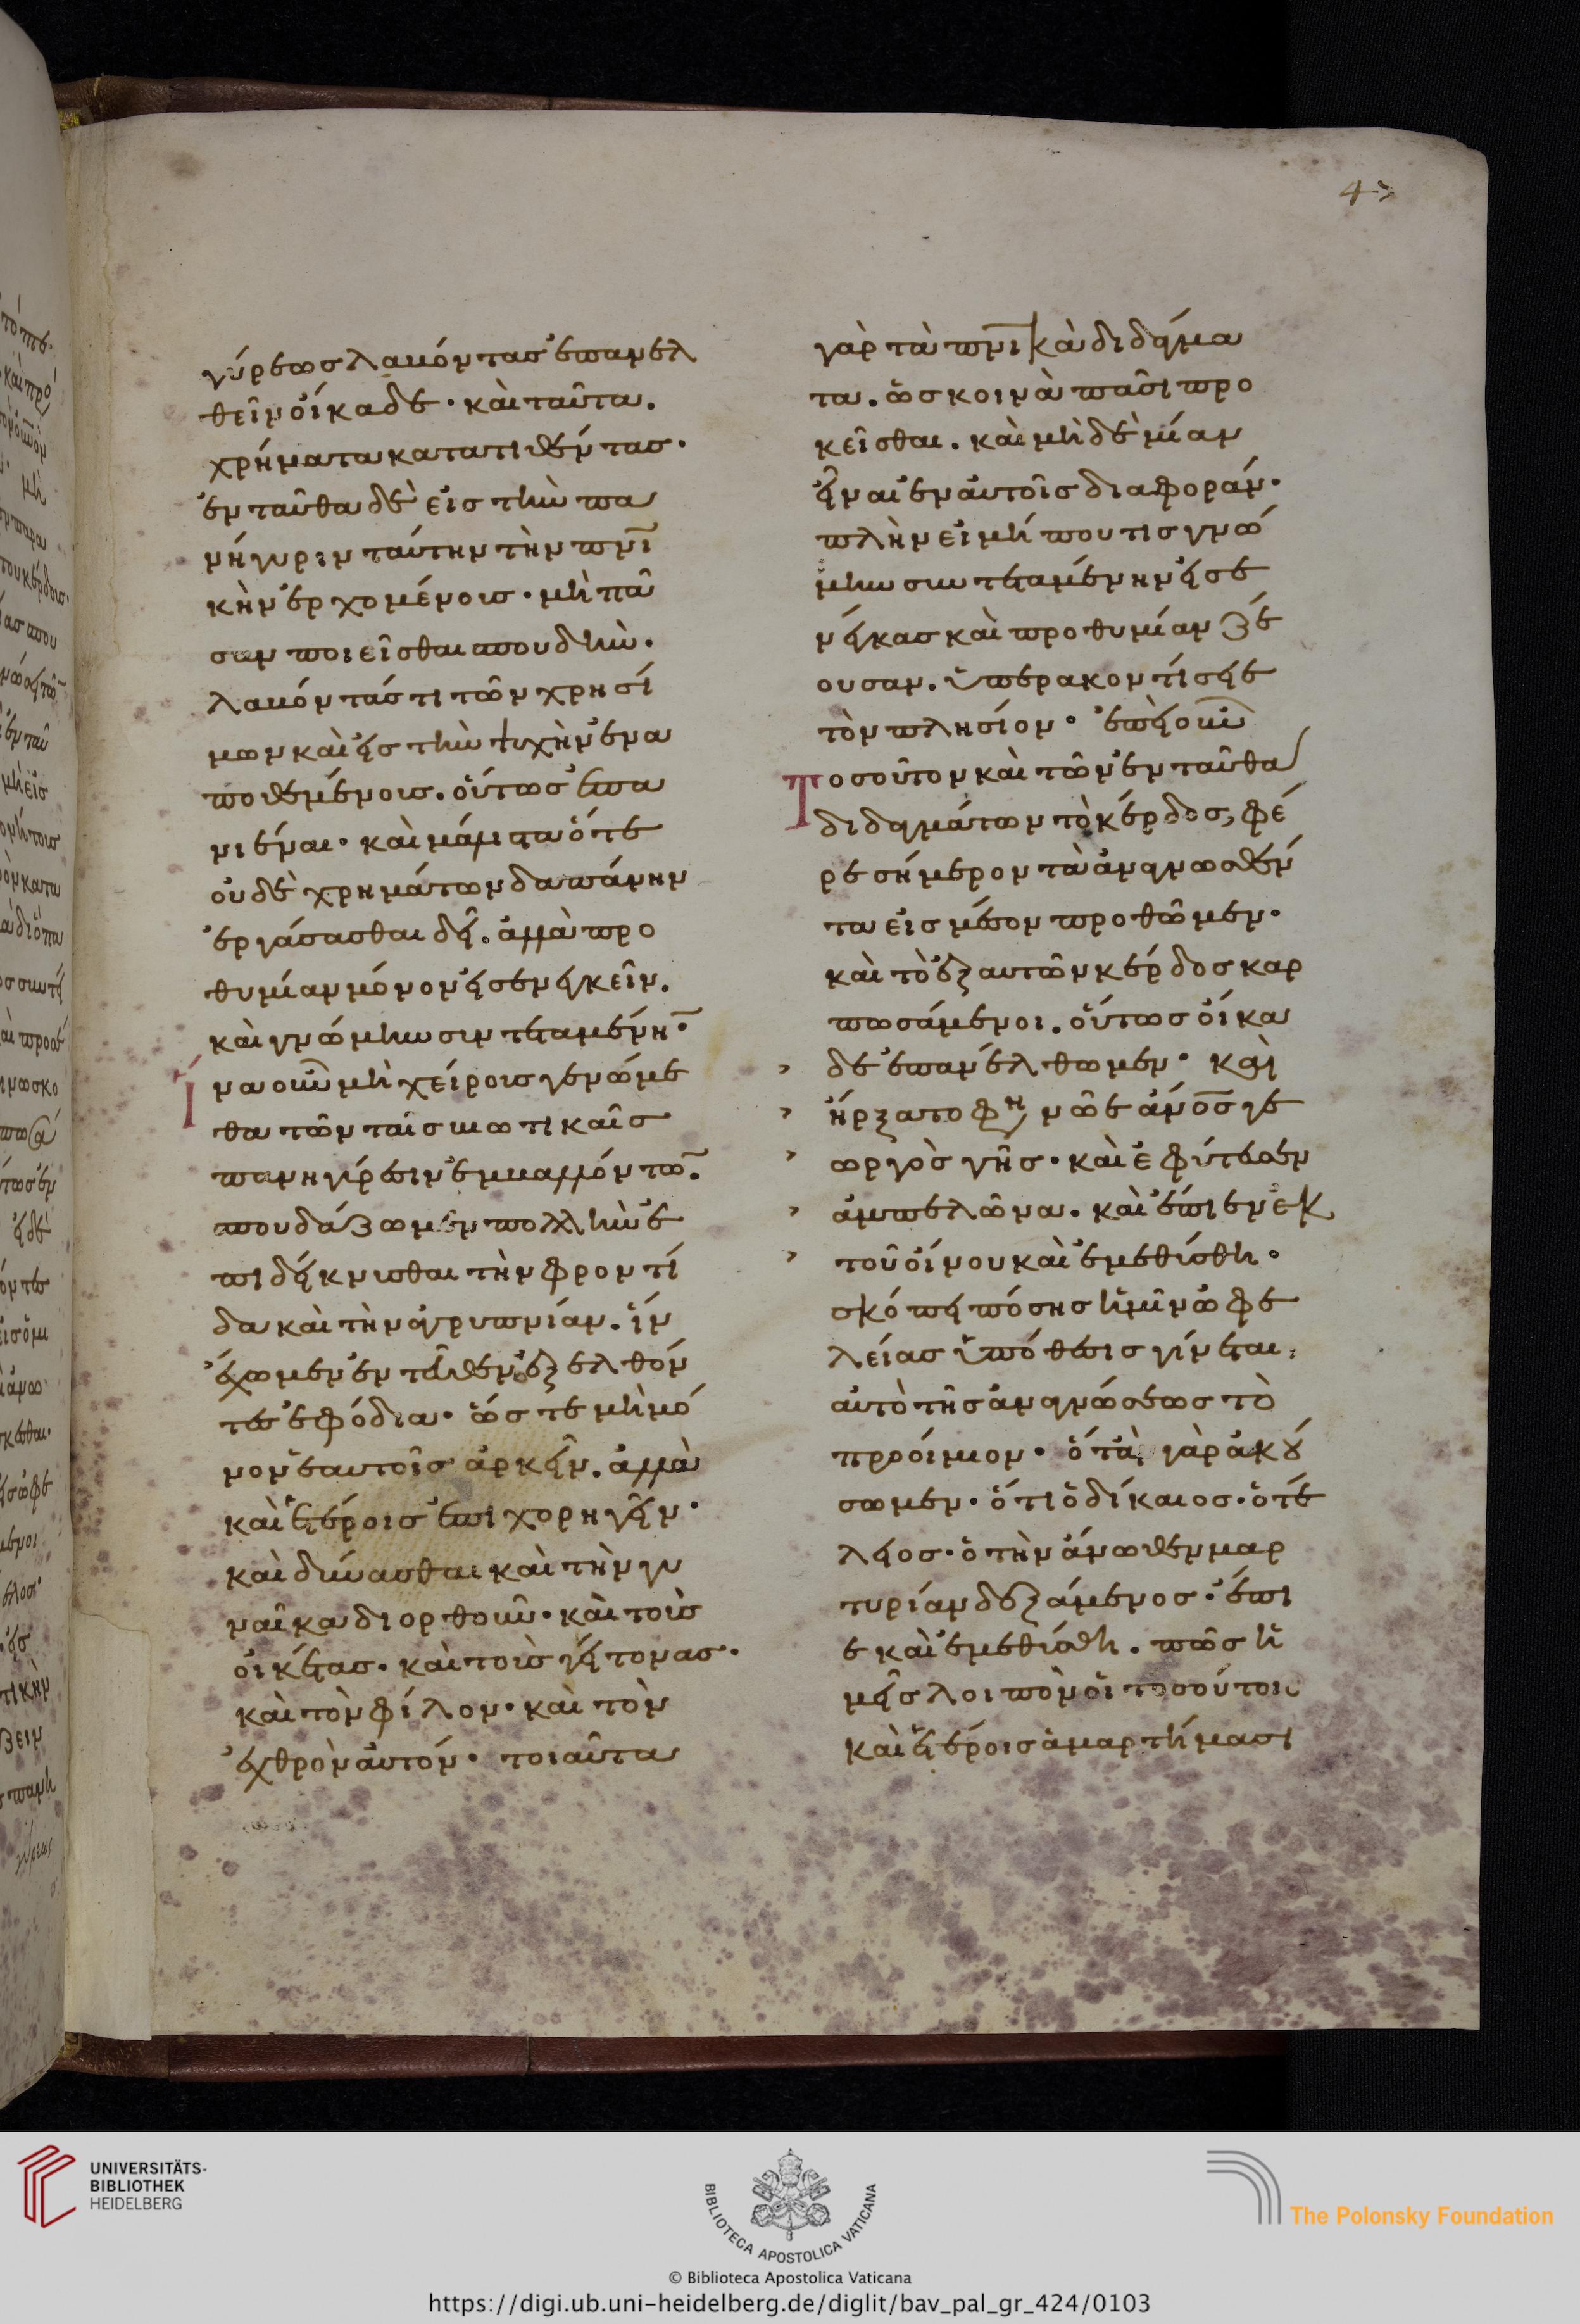 47
γύρεως λαβόντας ἐπανελ
θεῖν οἴκαδε· καὶ ταῦτα.
χρήματα κατατιθέντας·
ἐνταῦθα δὲ εἰς τὴν πα
νήγυριν ταύτην τὴν πνι
κὴν ἐρχομένους· μὴ πᾶ
σαν ποιεῖσθαι σπουδὴν·
λαβόντάς τι τῶν χρησί
μων καὶ εἰς τὴν ψυχὴν ἐνα
ποθεμένους. οὕτως ἐπα
νιέναι· καὶ μάλιστα ὅτε
οὐδὲ χρημάτων δαπάνην
ἐργάσασθαι δεῖ. ἀλλὰ προ
θυμίαν μόνον εἰσενεγκεῖν.
καὶ γνώμην συντεταμένην·
Ἵνα οὖν μὴ χείρους γενώμε
θα τῶν ταῖς βιωτικαῖς
πανηγύρεσιν ἐμβαλλόντω̅.
σπουδάζωμεν πολλὴν ἐ
πιδείκνυσθαι τὴν φροντί
δα καὶ τὴν ἀγρυπνίαν. ἵν
ἔχωμεν ἐντεῦθεν ἐξελθόν
τες ἐφόδια· ὥστε μὴ μό
νον ἑαυτοῖς ἀρκεῖν. ἀλλὰ
καὶ ἑτέροις ἐπιχορηγεῖν·
καὶ δύνασθαι καὶ τὴν γυ
ναῖκα διορθοῦν· καὶ τοὺς
οἰκέτας· καὶ τοὺς γείτονας·
καὶ τὸν φίλον· καὶ τὸν
ἐχθρὸν αὐτόν· τοιαῦτα
γὰρ τὰ πνικὰ διδάγμα
τα. ὡς κοινὰ πᾶσι προ
κεῖσθαι. καὶ μὴ δὲ μίαν
εἶναι ἐν αὐτοῖς διαφοράν·
πλὴν εἰ μή που τις γνώ
μην συντεταμένην εἰσε
νέγκας καὶ προθυμίαν ζέ
ουσαν. ὑπερακοντίσειε
τὸν πλησίον· ἐπεὶ οὖν
Τοσοῦτον καὶ τῶν ἐνταῦθα
διδαγμάτων τὸ κέρδος, φέ
ρε σήμερον τὰ ἀναγνωσθέν
τα εἰς μέσον προθῶμεν·
καὶ τὸ ἐξ αὐτῶν κέρδος καρ
πωσάμενοι. οὕτως οἴκα
δε ἐπανέλθωμεν· καὶ
ἤρξατο φη νῶε ἄνος γε
ωργὸς γῆς· καὶ ἐφύτευσεν
ἀμπελῶνα. καὶ ἔπιεν ἐκ
τοῦ οἴνου καὶ ἐμεθύσθη·
σκόπει πόσης ἡμῖν ὠφε
λείας ὑπόθεσις γίνεται,
αὐτὸ τῆς ἀναγνώσεως τὸ
προοίμιον· ὅταν γὰρ ἀκού
σωμεν· ὅτι ὁ δίκαιος· ὁ τέ
λειος· ὁ τὴν ἄνωθεν μαρ
τυρίαν δεξάμενος· ἔπι
ε καὶ ἐμεθύσθη. πῶς ἡ
μεῖς λοιπὸν οἱ τοσούτοις
καὶ ἑτέροις ἁμαρτήμασι
UNIVERSITÄTS-
BIBLIOTHEK
HEIDELBERG
BIBLIOTECA APOSTOLICA VATICANA
The Polonsky Foundation
© Biblioteca Apostolica Vaticana
https://digi.ub.uni-heidelberg.de/diglit/bav_pal_gr_424/0103